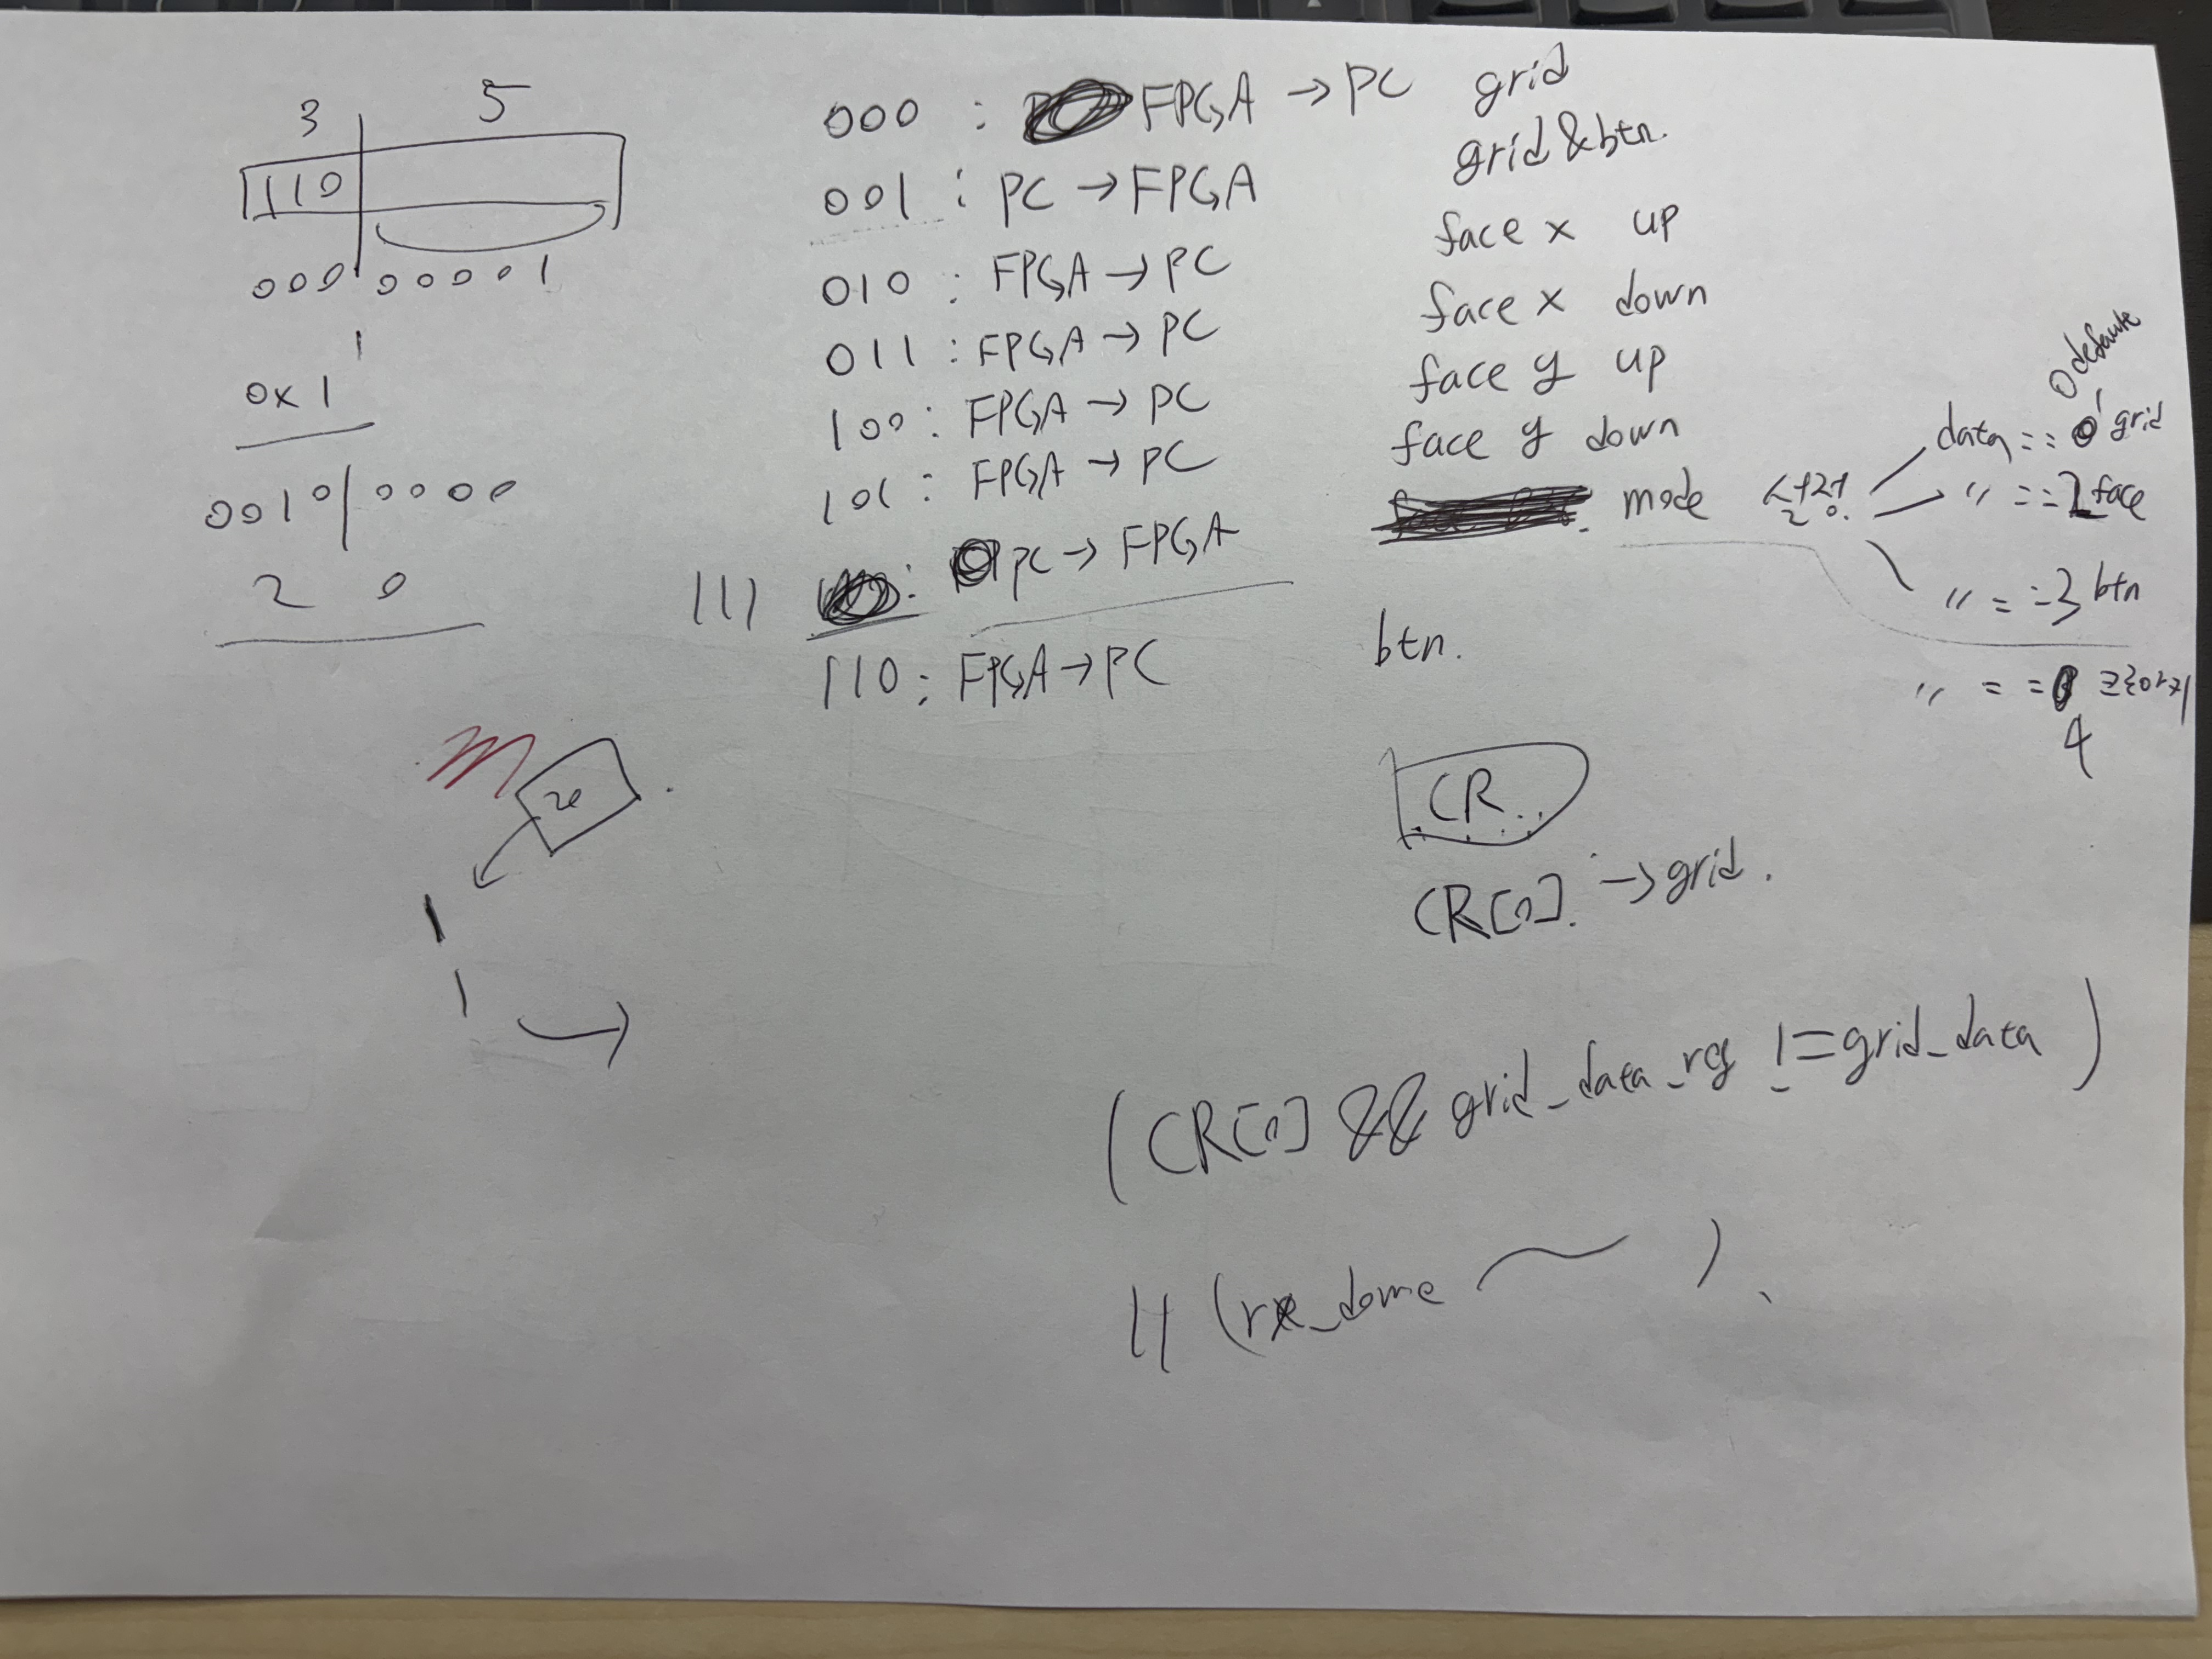 3 5
110
000 00001
1
0x1
0010 0000
2 0
000 : FPGA → PC grid
001 : PC → FPGA grid&btn.
010 : FPGA → PC face x up
011 : FPGA → PC face x down
100 : FPGA → PC face y up
101 : FPGA → PC face y down
111 : PC → FPGA mode
110 : FPGA → PC btn.
0 default
data == 1 grid
" == 2 face
" == 3 btn
" == 4
20
1
1
CR
CR[0]. → grid.
(CR[0] && grid_data_reg != grid_data )
|| (rx_done )